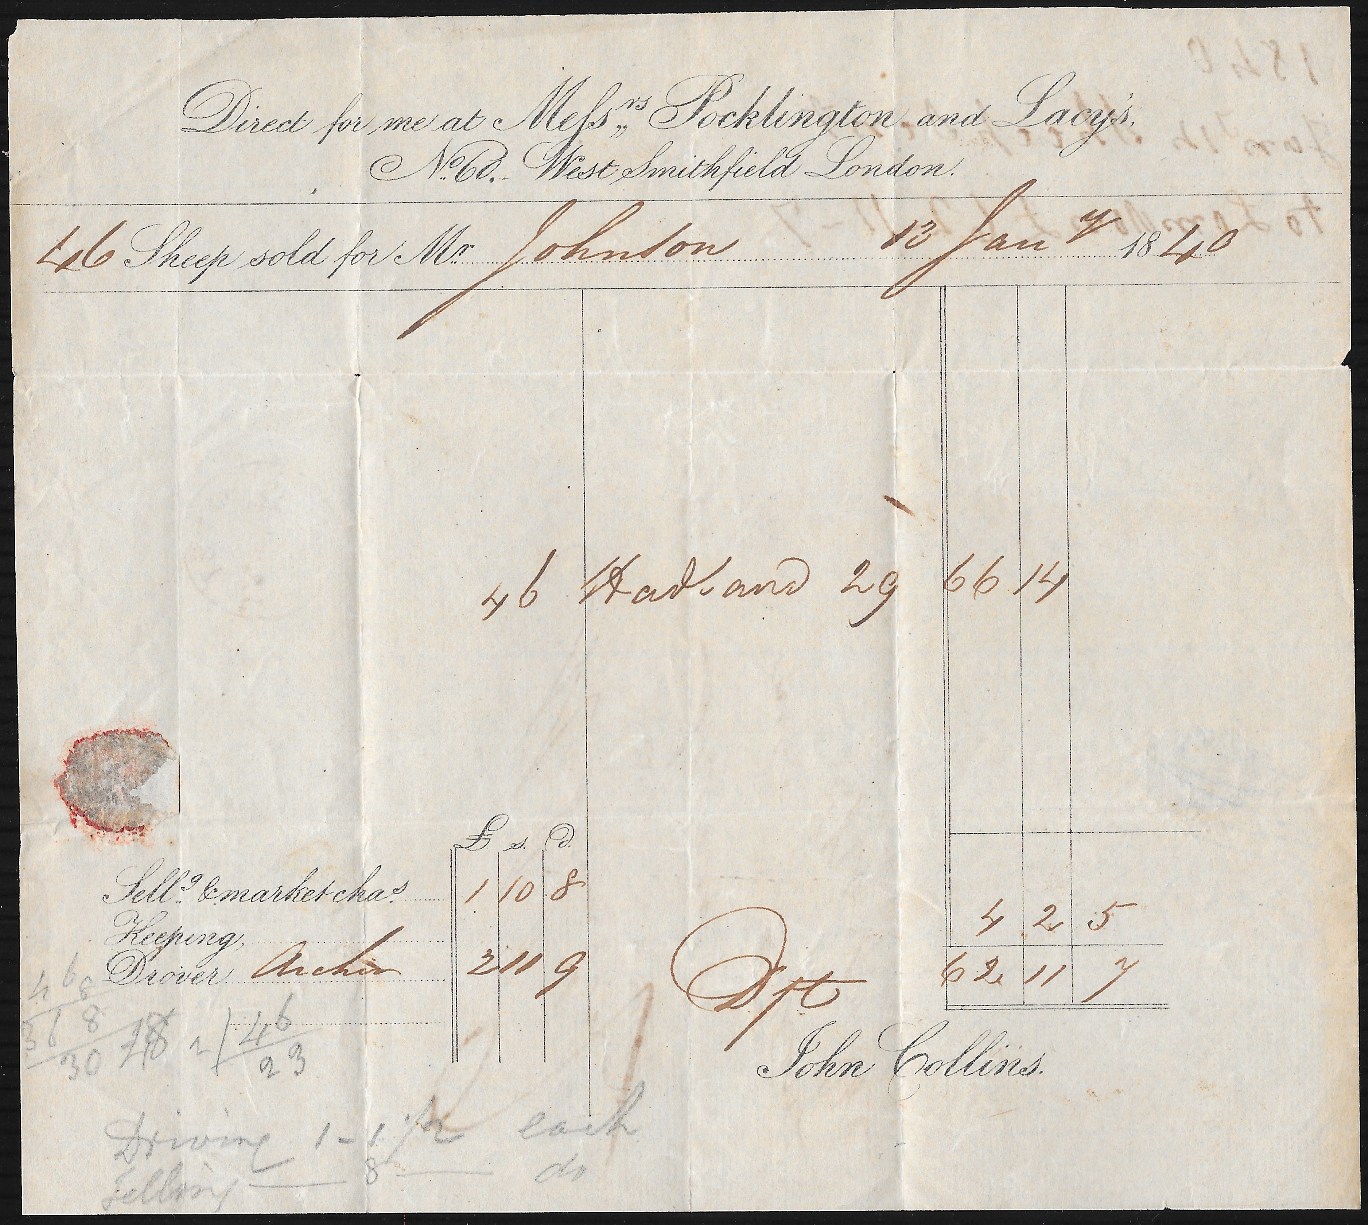 Direct for me at Messrs Pocklington and Lacy's,
No. 60. West Smithfield London.
46 Sheep sold for Mr Johnson 13 Jany 1840
46 Hadland 29 66 14
£ s. D.
Sellg. & market chas. 1 10 8
4 2 5
Keeping,
Drover Archer 2 11 9
Dft 62 11 7
46
8
368
30
2) 46
23
John Collins.
Driving 1-1 1/2 each
Selling 8 do
1840